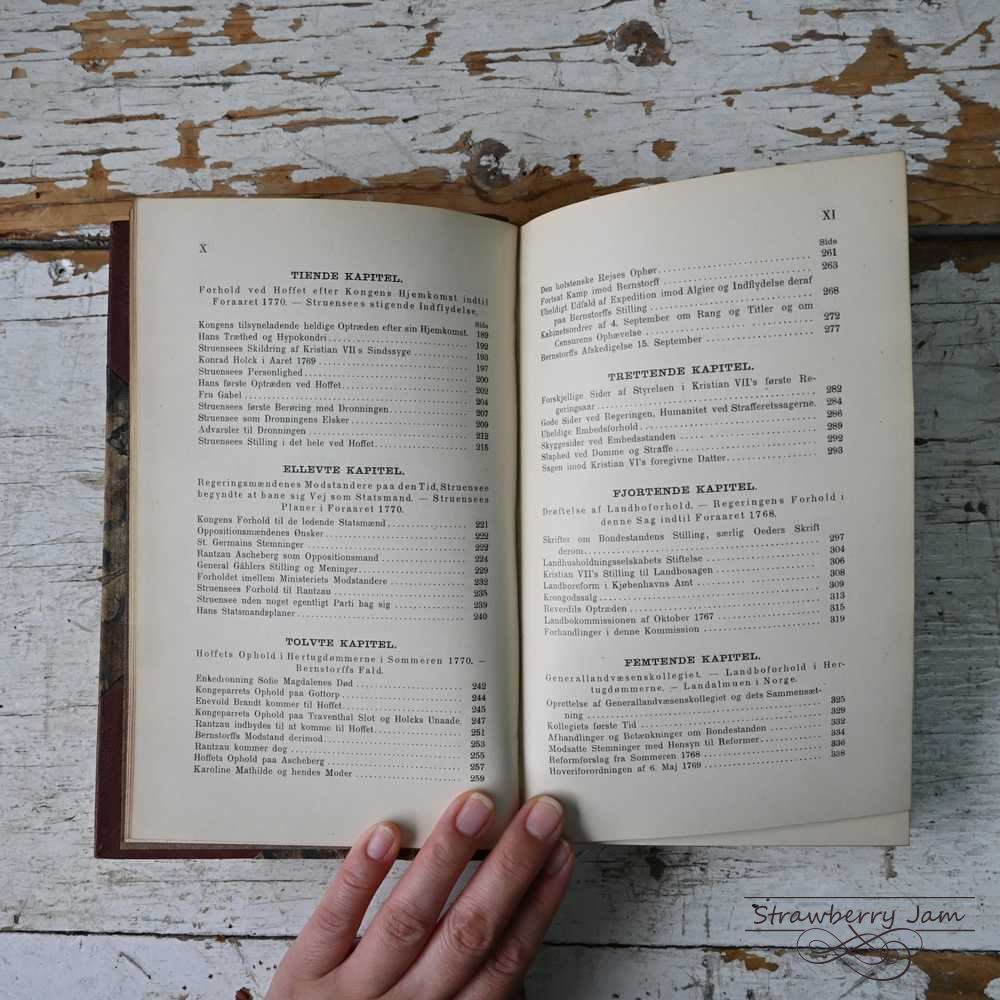 X
TIENDE KAPITEL.
Forhold ved Hoffet efter Kongens Hjemkomst indtil
Foraaret 1770. — Struensees stigende Indflydelse.
Side
Kongens tilsyneladende heldige Optræden efter sin Hjemkomst. 189
Hans Træthed og Hypokondri 192
Struensees Skildring af Kristian VII s Sindssyge 193
Konrad Holck i Aaret 1769 197
Struensees Personlighed 200
Hans første Optræden ved Hoffet 202
Fru Gabel 204
Struensees første Berøring med Dronningen 207
Struensee som Dronningens Elsker 209
Advarsler til Dronningen 212
Struensees Stilling i det hele ved Hoffet 215
ELLEVTE KAPITEL.
Regeringsmændenes Modstandere paa den Tid, Struensee
begyndte at bane sig Vej som Statsmand. — Struensees
Planer i Foraaret 1770.
Kongens Forhold til de ledende Statsmænd 221
Oppositionsmændenes Ønsker 222
St. Germains Stemninger 222
Rantzau Ascheberg som Oppositionsmand 224
General Gählers Stilling og Meninger 229
Forholdet imellem Ministeriets Modstandere 232
Struensees Forhold til Rantzau 235
Struensee uden noget egentligt Parti bag sig 239
Hans Statsmandsplaner 240
TOLVTE KAPITEL.
Hoffets Ophold i Hertugdømmerne i Sommeren 1770. —
Bernstorffs Fald.
Enkedronning Sofie Magdalenes Død 242
Kongeparrets Ophold paa Gottorp 244
Enevold Brandt kommer til Hoffet 245
Kongeparrets Ophold paa Traventhal Slot og Holcks Unaade. 247
Rantzau indbydes til at komme til Hoffet 251
Bernstorffs Modstand derimod 253
Rantzau kommer dog 255
Hoffets Ophold paa Ascheberg 257
Karoline Mathilde og hendes Moder 259
XI
Side
Den holstenske Rejses Ophør 261
Fortsat Kamp imod Bernstorff 263
Uheldigt Udfald af Expedition imod Algier og Indflydelse deraf
paa Bernstorffs Stilling 268
Kabinetsordrer af 4. September om Rang og Titler og om
Censurens Ophævelse 272
Bernstorffs Afskedigelse 15. September 277
TRETTENDE KAPITEL.
Forskjellige Sider af Styrelsen i Kristian VII's første Re-
geringsaar 282
Gode Sider ved Regeringen, Humanitet ved Strafferetssagerne. 284
Uheldige Embedsforhold 286
Skyggesider ved Embedsstanden 289
Slaphed ved Domme og Straffe 292
Sagen imod Kristian VI's foregivne Datter 293
FJORTENDE KAPITEL.
Drøftelse af Landboforhold. — Regeringens Forhold i
denne Sag indtil Foraaret 1768.
Skrifter om Bondestandens Stilling, særlig Oeders Skrift
derom 297
Landhusholdningsselskabets Stiftelse 304
Kristian VII's Stilling til Landbosagen 306
Landboreform i Kjøbenhavns Amt 308
Krongodssalg 309
Reverdils Optræden 313
Landbokommissionen af Oktober 1767 315
Forhandlinger i denne Kommission 319
FEMTENDE KAPITEL.
Generallandvæsenskollegiet. — Landboforhold i Her-
tugdømmerne. — Landalmuen i Norge.
Oprettelse af Generallandvæsenskollegiet og dets Sammensæt-
ning 325
Kollegiets første Tid 329
Afhandlinger og Betænkninger om Bondestanden 332
Modsatte Stemninger med Hensyn til Reformer 334
Reformforslag fra Sommeren 1768 336
Hoveriforordningen af 6. Maj 1769 338
Strawberry Jam